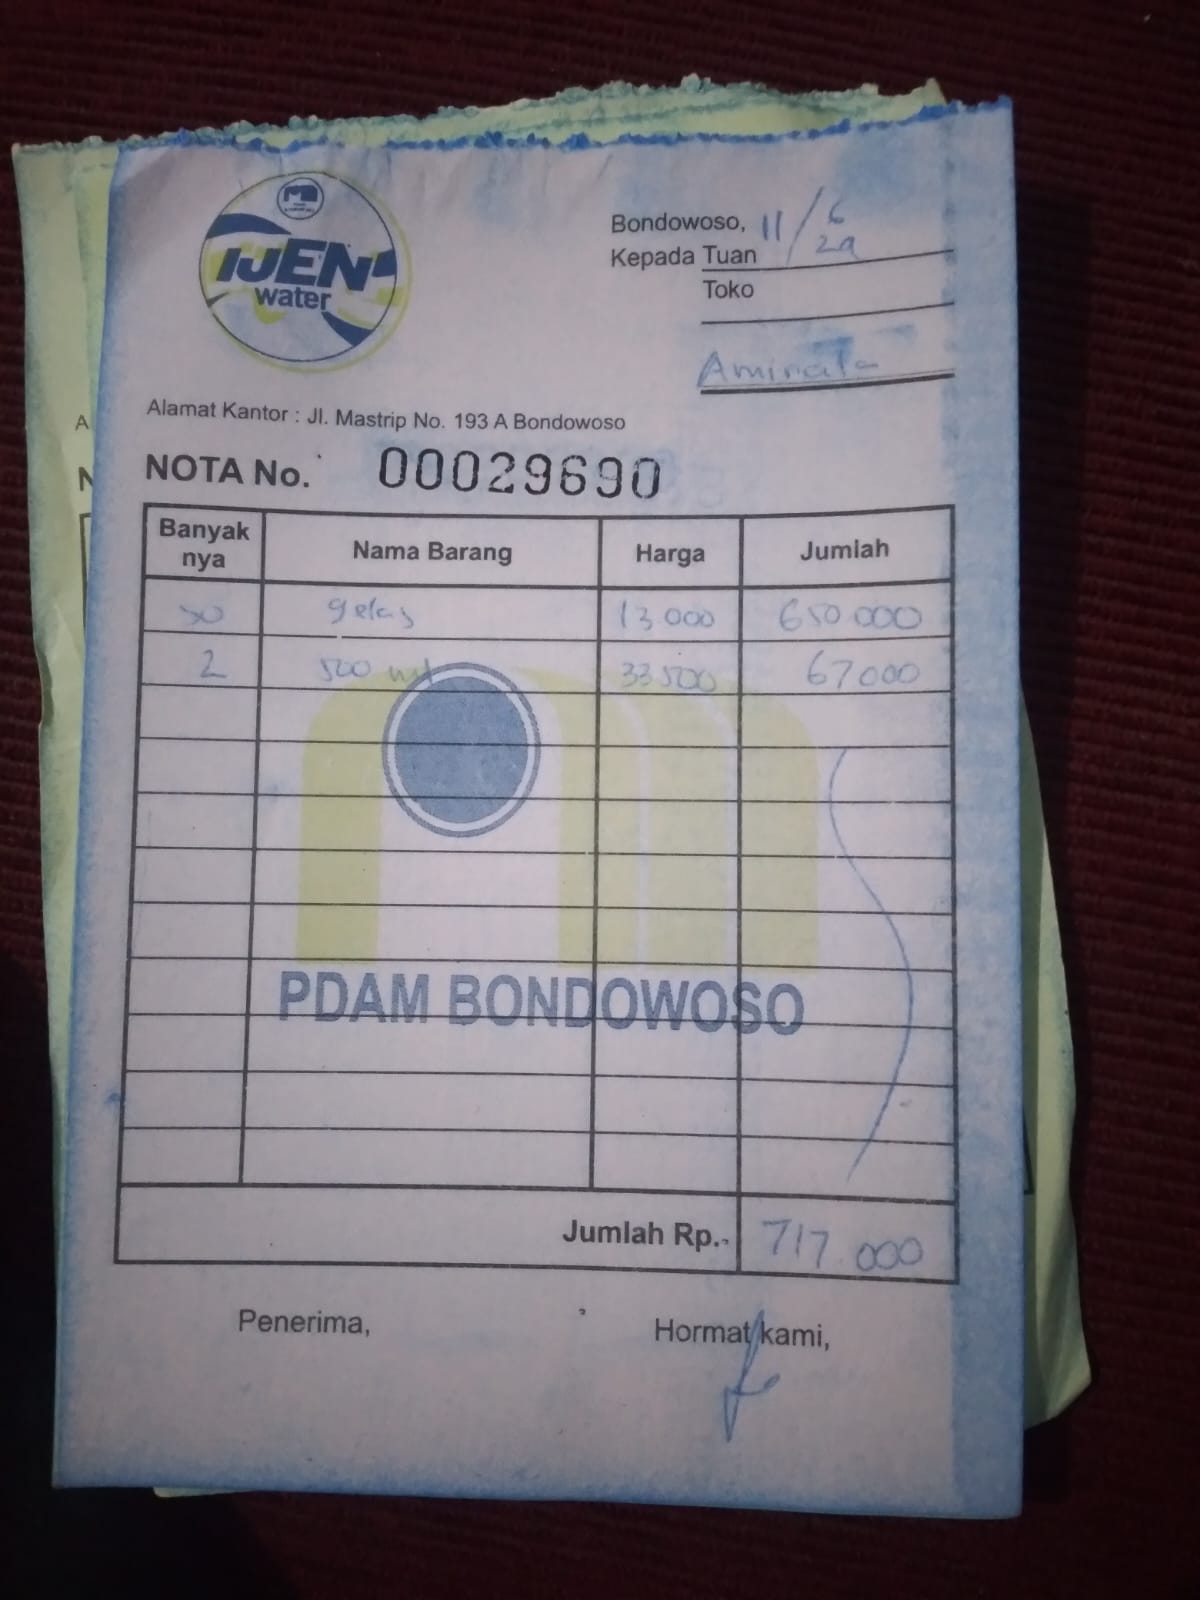 IJEN
water
Bondowoso, 11/6
Kepada Tuan
Toko
Alamat Kantor : Jl. Mastrip No. 193 A Bondowoso
NOTA No. 00029690
Banyak nya Nama Barang Harga Jumlah
50 gelas 13.000 650.000
2 500 ml 33.500 67.000
PDAM BONDOWOSO
Jumlah Rp.- 717.000
Penerima, Hormat kami,